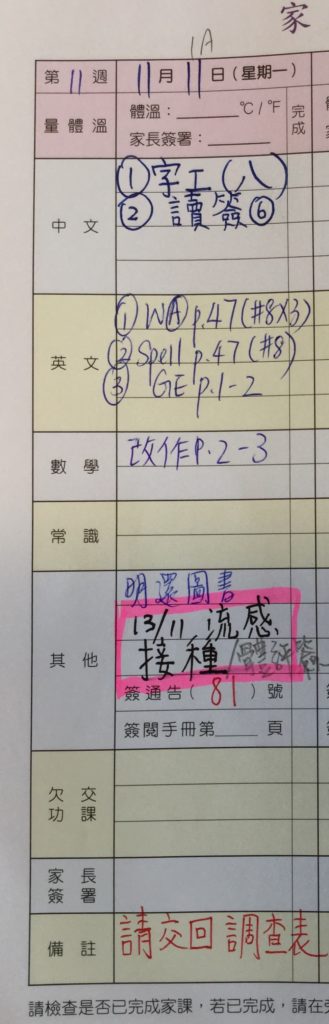 家
1A
第 11 週 11 月 11 日 (星期一)
量體溫 體溫：______ °C / °F 完成
家長簽署：______
中文 ① 字工(八)
② 讀簽⑥
英文 ① WA p.47(#8×3)
② Spell p.47 (#8)
③ GE p.1-2
數學 改作P.2-3
常識
其他 明還圖書
13/11 流感
接種
簽通告( 81 ) 號
簽閱手冊第____ 頁
欠交功課
家長簽署
備註 請交回調查表
請檢查是否已完成家課，若已完成，請在